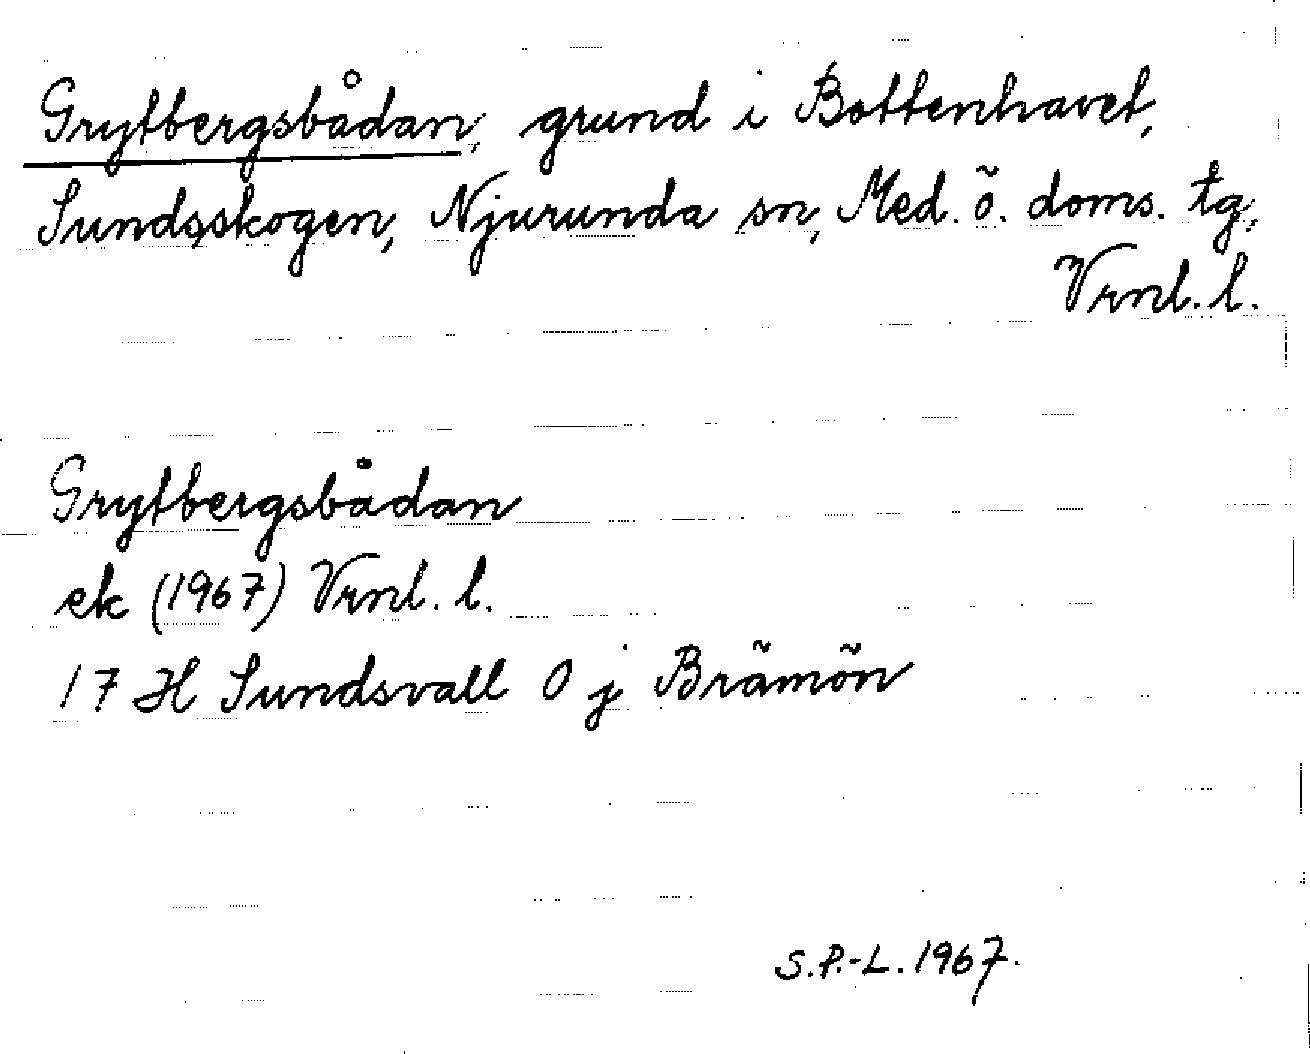 Grytbergsbådan, grund i Bottenhavet,
Sundsskogen, Njurunda sn, Med. ö. doms. tg,
Vrnl. l.
Grytbergsbådan
ek (1967) Vrnl. l.
17 H Sundsvall O j Brämön
S.P.-L. 1967.